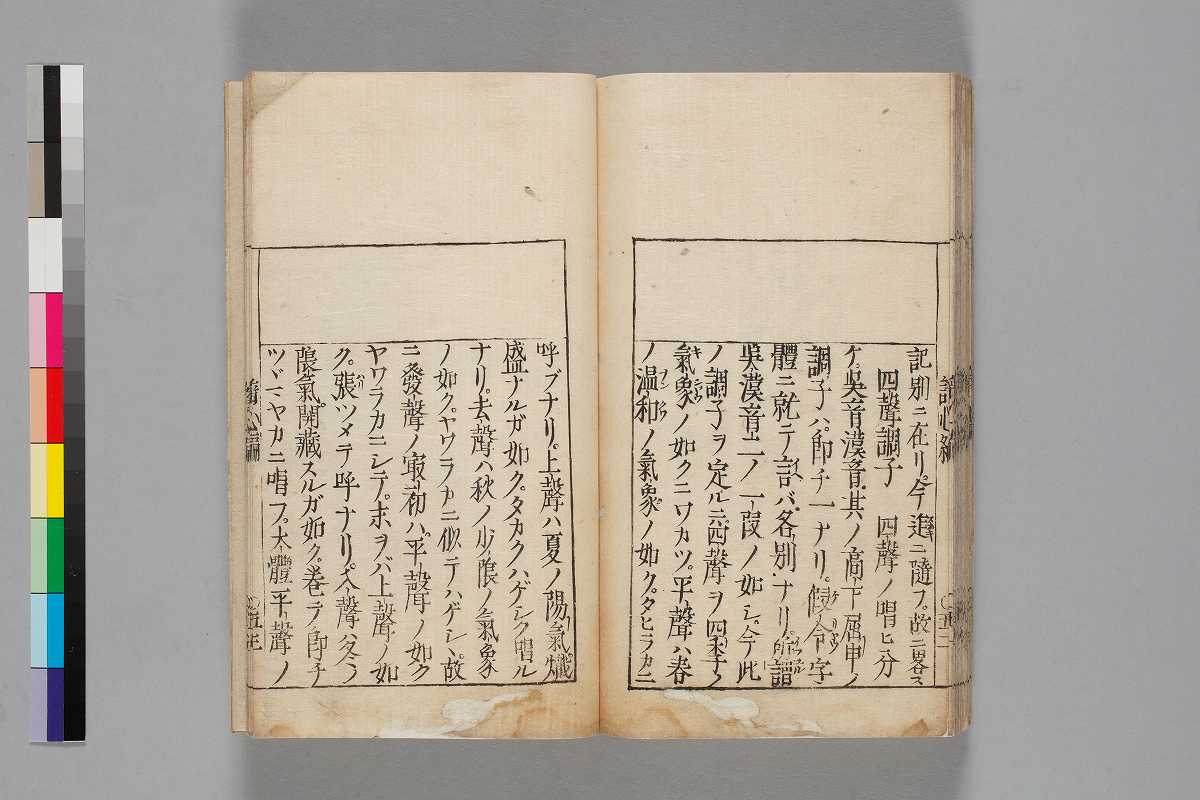 記別ニ在リ。今追ニ隨フ。故ニ畧ス
四聲調子　四聲ノ唱ヒ分
ケ。吳音漢音其ノ高下屈申ノ
調子ハ。卽チ一ナリ。假令字
體ニ就テ言バ。各別ナリ。所謂
吳漢音二ノ一段ノ如シ。今此
ノ調子ヲ定ルニ。四聲ヲ四季ノ
氣象ノ如クニワカツ。平聲ハ春
ノ温和ノ氣象ノ如ク。タヒラカニ
呼ブナリ。上聲ハ夏ノ陽氣熾
盛ナルガ如ク。タカクハゲシク唱ル
ナリ。去聲ハ秋ノ少隂ノ氣象
ノ如ク。ヤワラカニ似テハゲシ。故
ニ發聲ノ㝡初ハ。平聲ノ如ク
ヤワラカニシテ。末ヲバ上聲ノ如
ク。張ツメテ呼ナリ。入聲ハ冬ノ
隂氣閉藏スルガ如ク。巻テ卽チ
ツヾマヤカニ唱フ。大體平聲ノ